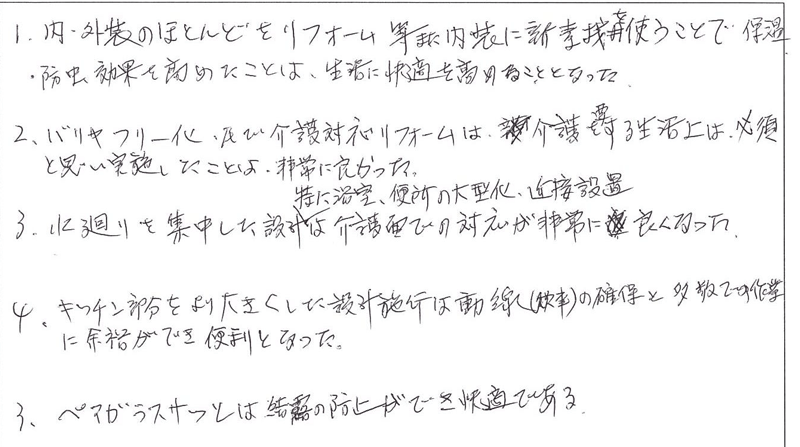 1. 内・外装のほとんどをリフォーム 等 内装に新素材を使うことで 保温
・防虫効果を高めたことは、生活に快適を高めることとなった。
2、バリヤフリー化・及び介護対応リフォームは、介護要する生活上は、必須
と思い実施したことは、非常に良かった。
特に浴室、便所の大型化、近接設置
3. 水廻りを集中した設計は介護面での対応が非常に良くなった。
4、キッチン部分をより大きくした設計施行は動線(効率)の確保と多数での作業
に余裕ができ便利となった。
3、ペアガラスサッシは結露の防止ができ快適である。